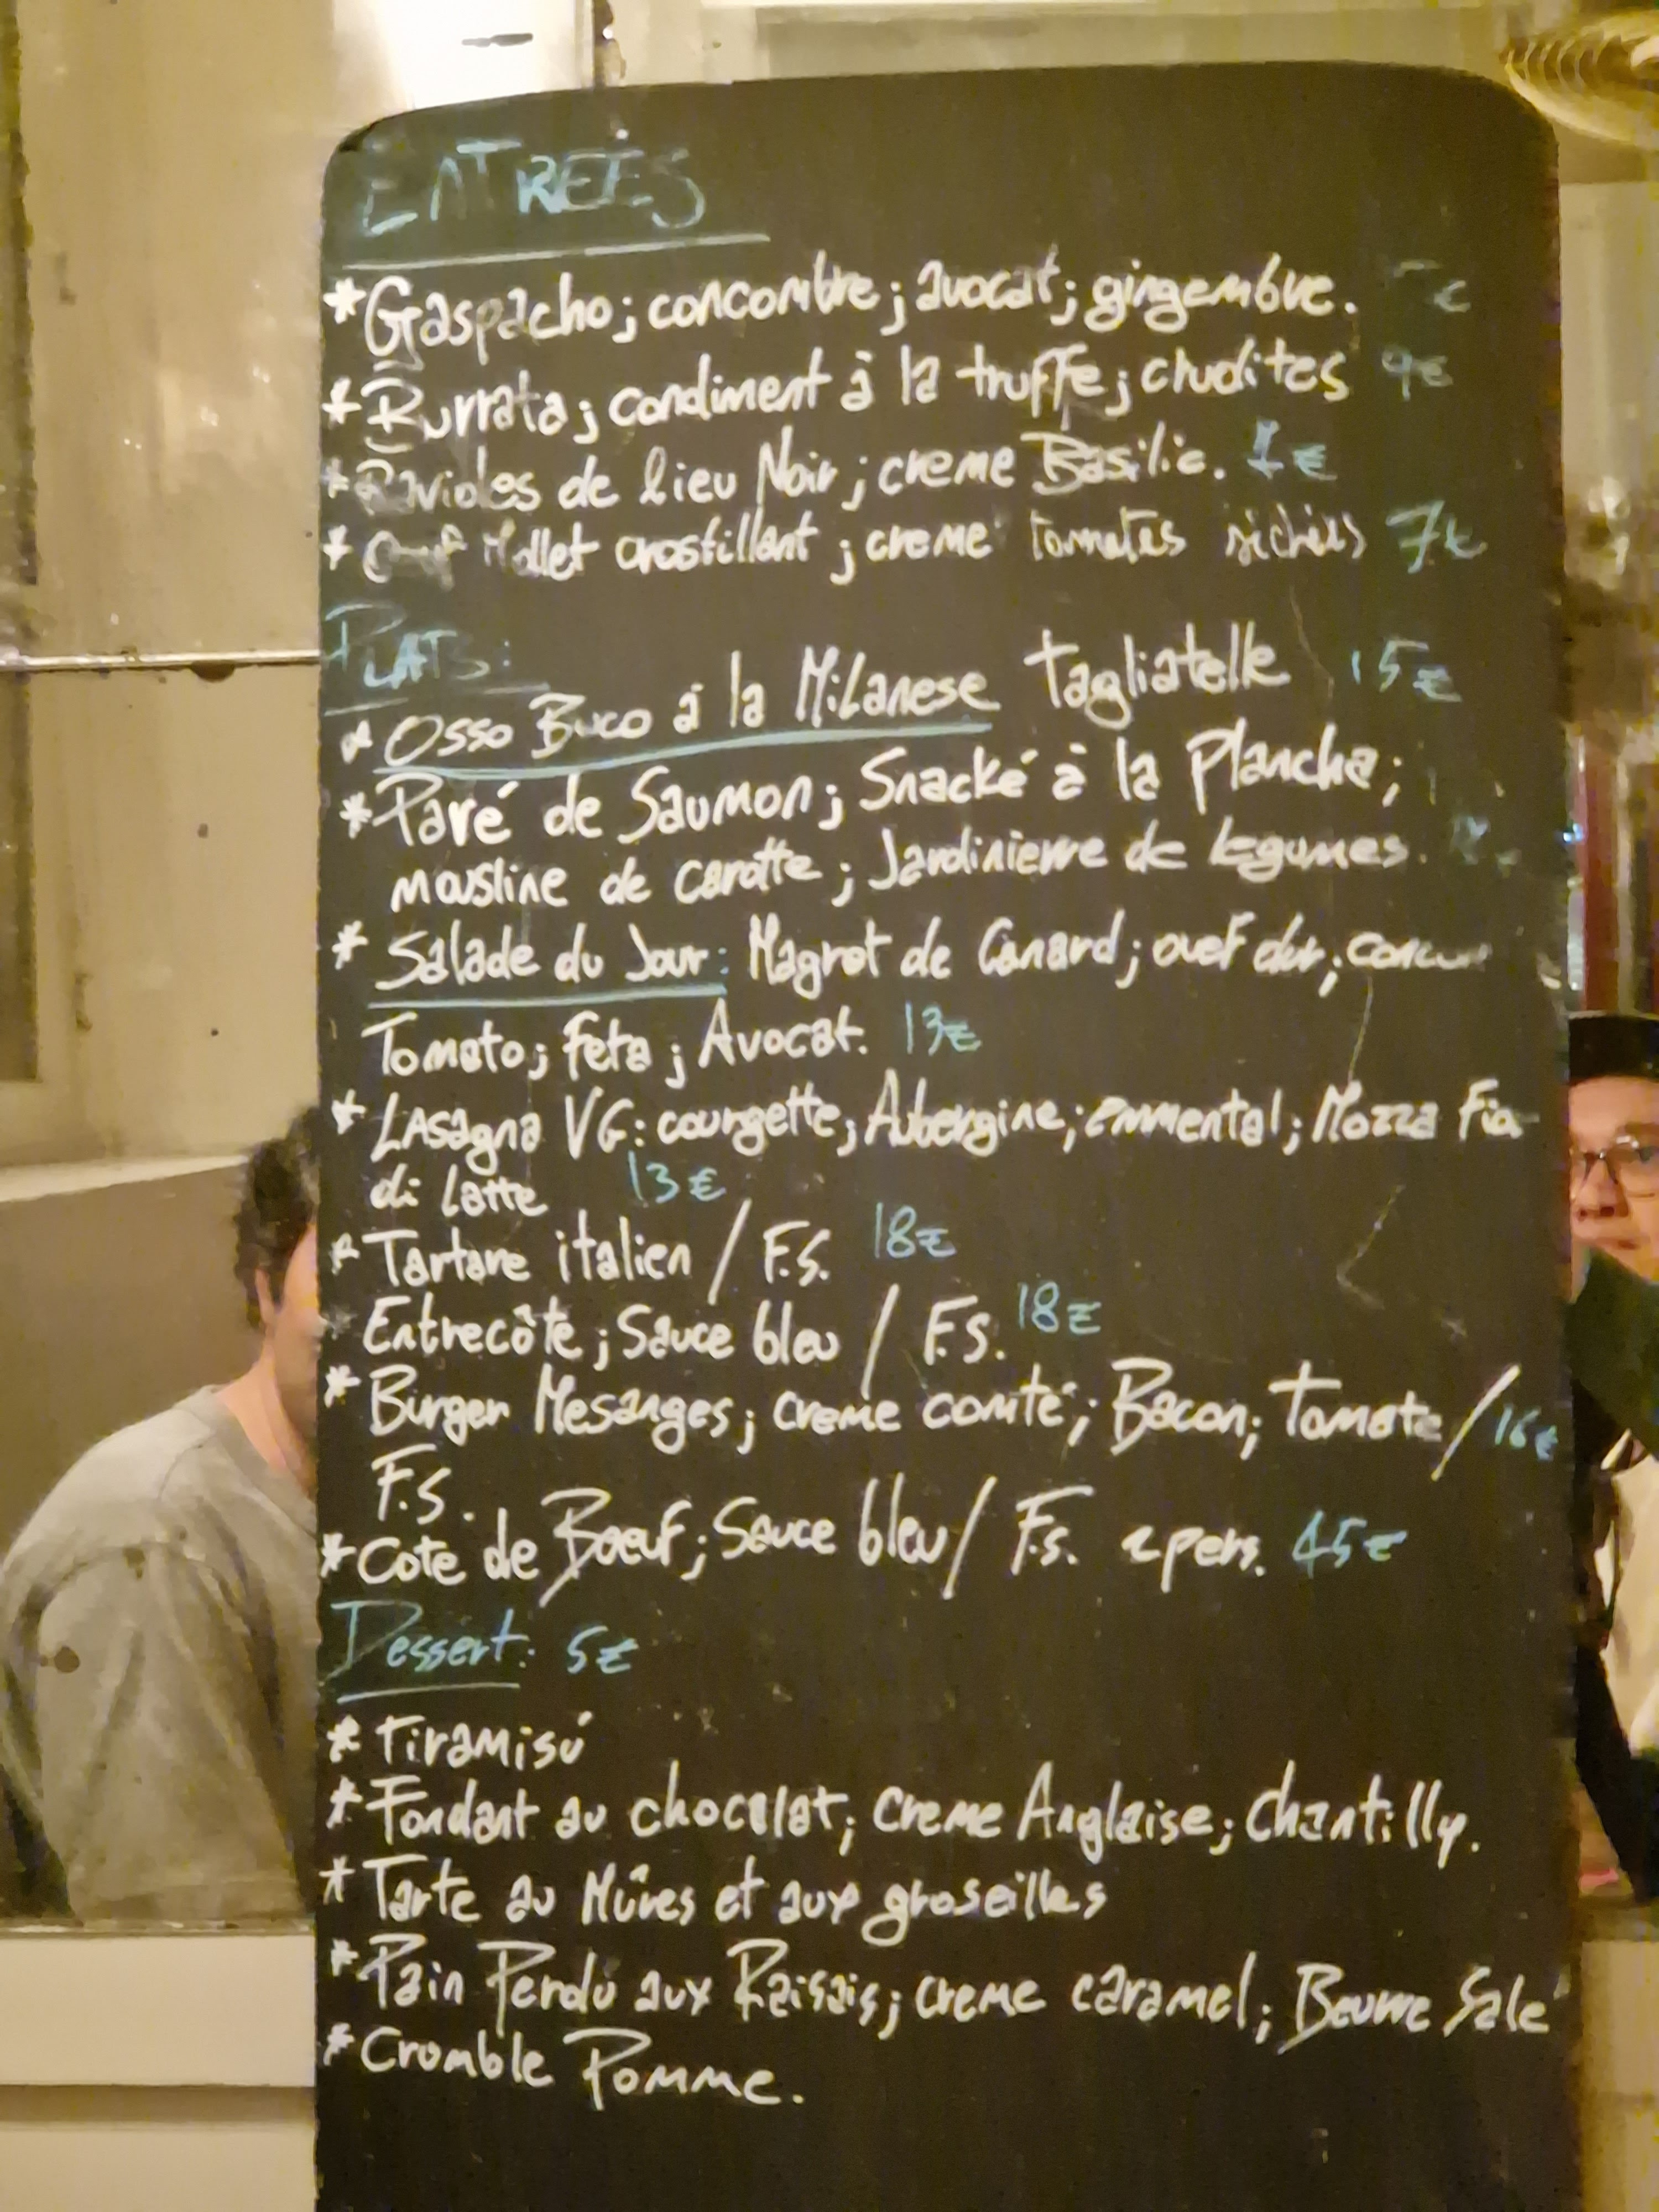 ENTRÉES
*Gaspacho; concombre; avocat; gingembre.
*Burrata; condiment à la truffe; crudites 9€
*Ravioles de lieu Noir; creme Basilic. €
* Mollet crostillant; creme tomates 7€
PLATS:
* Osso Buco á la Milanese tagliatelle 15€
*Pavé de Saumon; Snacké à la Plancha;
mousline de carotte; Jardinierre de legumes.
* Salade du Jour: Magret de Canard; ouef dur;
Tomato; feta; Avocat. 13€
* LAsagna VG: courgette; Aubergine; emmental; Mozza Fio
di Latte 13€
* Tartare italien / F.S. 18€
Entrecôte; Sauce bleu / F.S. 18€
* Burger Mesanges; creme comté; Bacon; Tomate / 16€
F.S.
*Cote de Boeuf; Sauce bleu / F.s. 2 pers. 45€
Dessert: 5€
* Tiramisú
* Fondant au chocolat; Creme Anglaise; Chantilly.
* Tarte au Mûres et aux groseilles
* Pain Perdu aux Raisais; creme caramel; Beurre Salé
* Cromble Pomme.